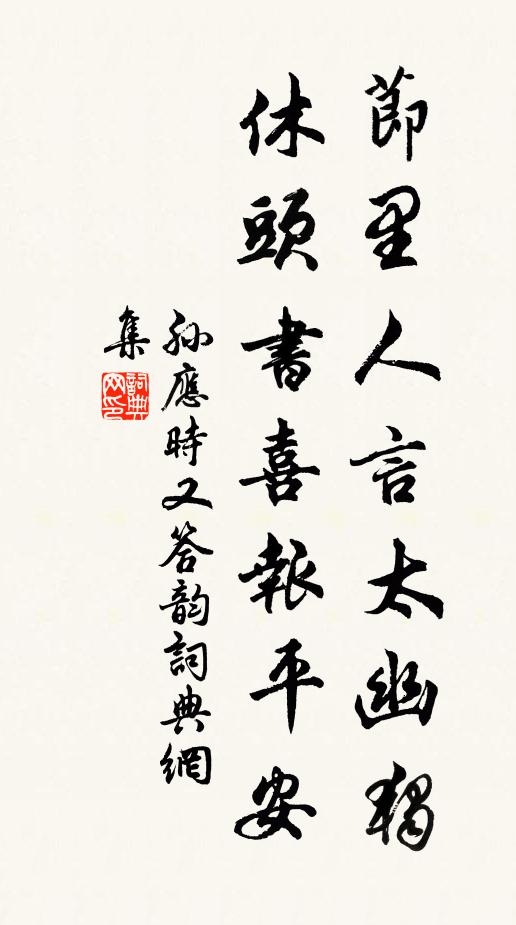 節里人言太幽獨
休頭書喜報平安
孫應時又答韵詞典網
集
詞典网印